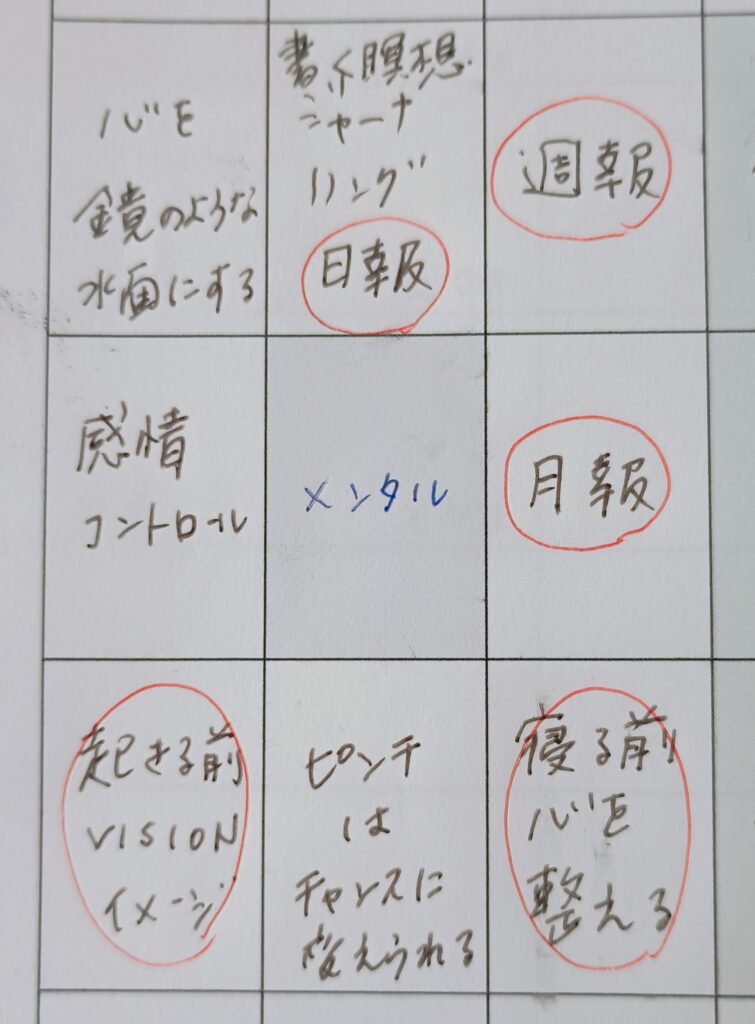 心を
鏡のような
水面にする
書く瞑想
ジャーナ
リング
日報
週報
感情
コントロール
メンタル
月報
起きる前
VISION
イメージ
ピンチ
は
チャンスに
変えられる
寝る前
心を
整える